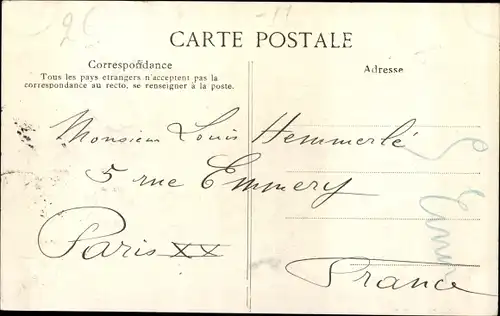 CARTE POSTALE
Correspondance
Tous les pays etrangers n'acceptent pas la
correspondance au recto, se renseigner à la poste.
Adresse
Monsieur Louis Hemmerlé
5 rue Emmery
Paris XX
France